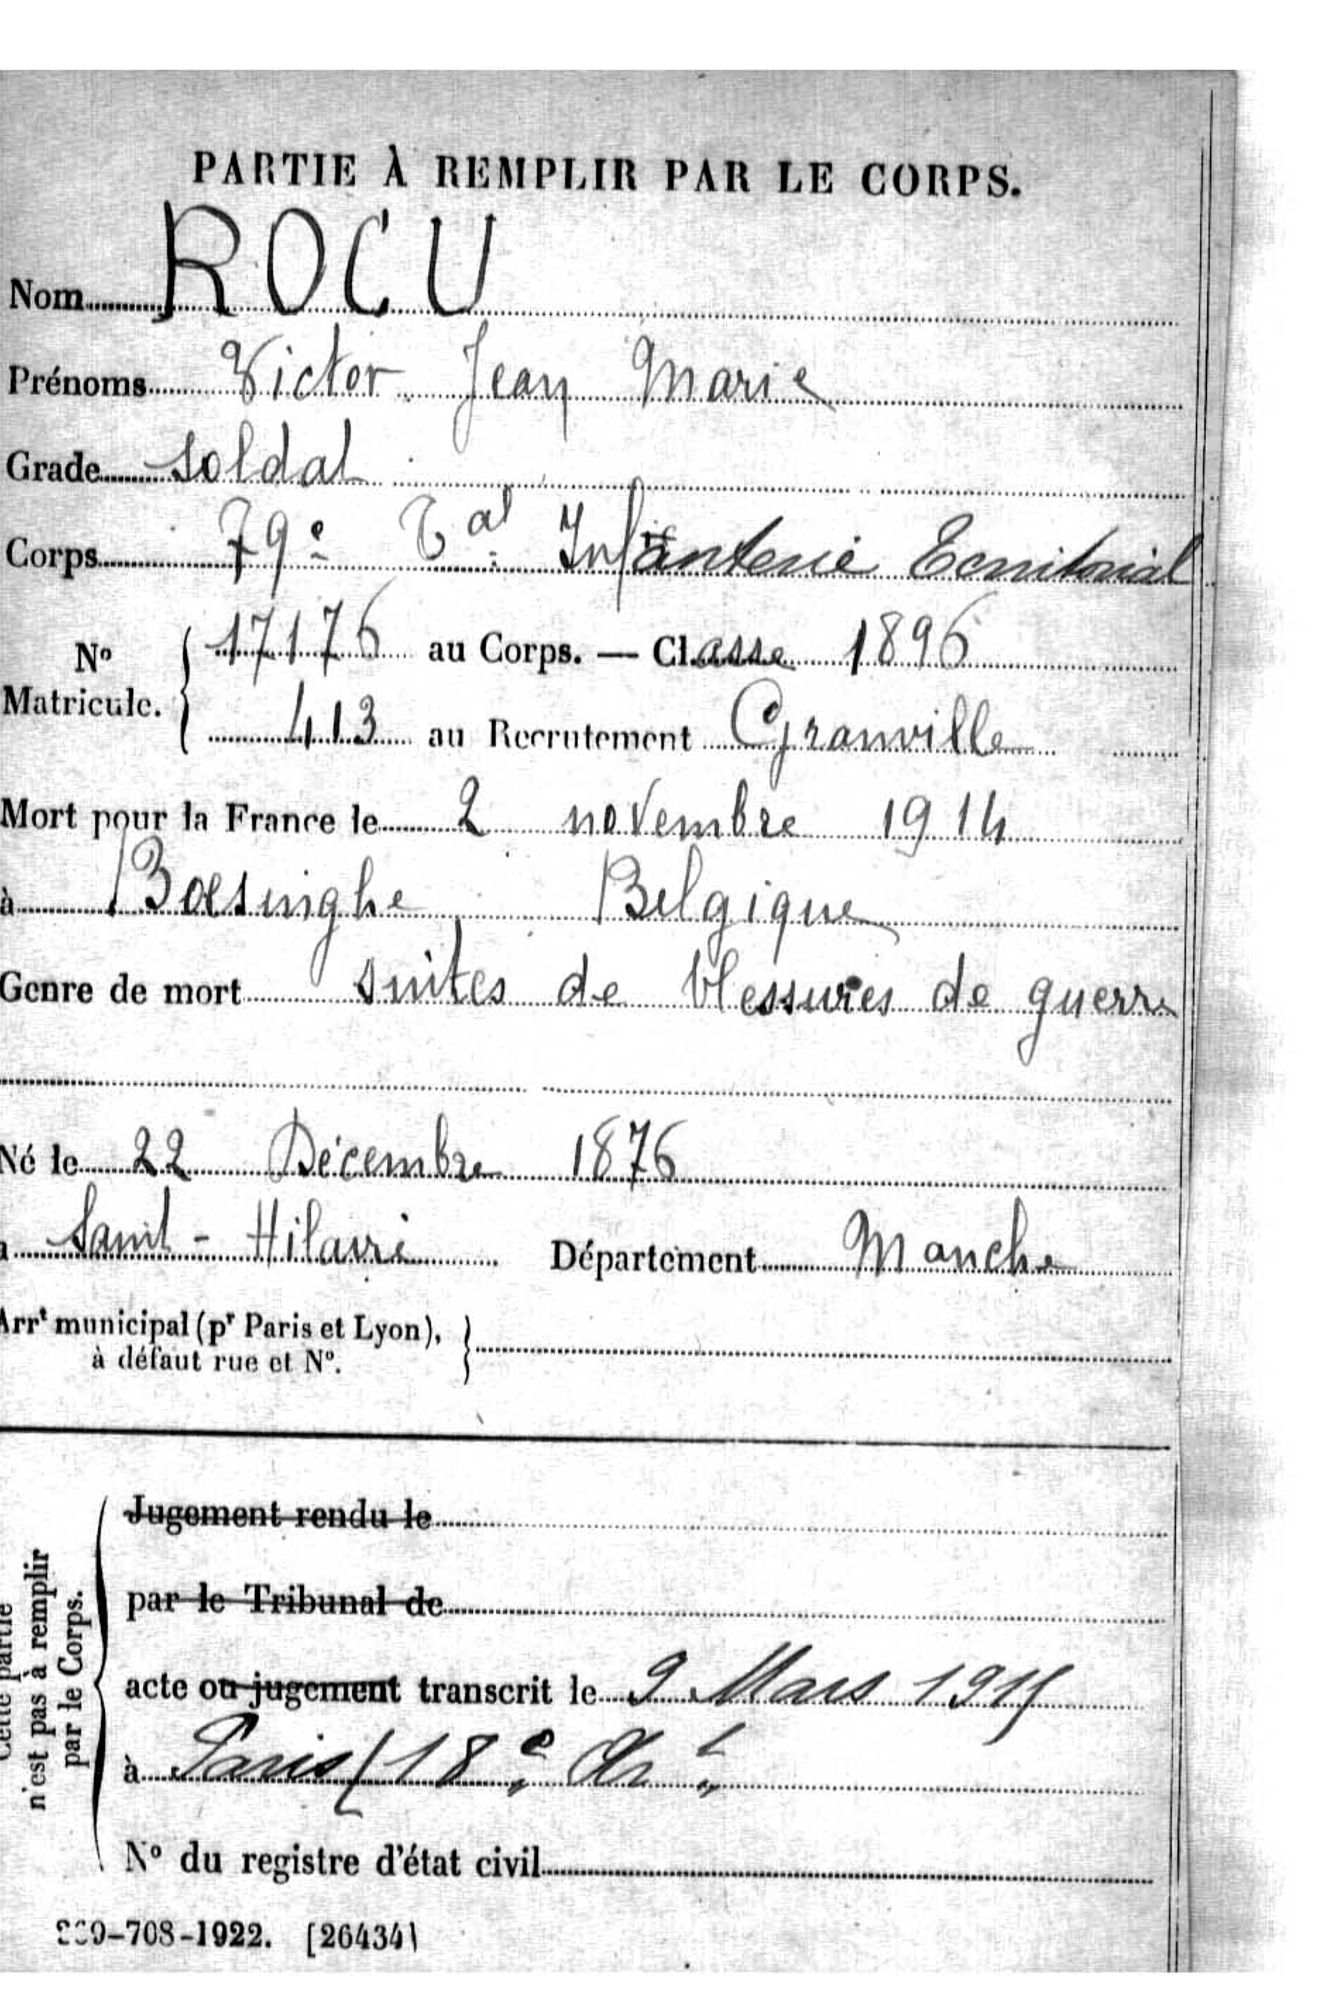 PARTIE À REMPLIR PAR LE CORPS.
Nom ROCU
Prénoms Victor Jean Marie
Grade soldat
Corps 79e Tal Infanterie Territorial
No Matricule. 17176 au Corps. — Classe 1896
413 au Recrutement Granville
Mort pour la France le 2 novembre 1914
à Boesinghe Belgique
Genre de mort suites de blessures de guerre
Né le 22 Décembre 1876
à Saint-Hilaire Département Manche
Arrt municipal (pr Paris et Lyon),
à défaut rue et No.
Cette partie
n'est pas à remplir
par le Corps.
Jugement rendu le
par le Tribunal de
acte ou jugement transcrit le 9 Mars 1915
à Paris (18e Art
No du registre d'état civil
-708-1922. [26434]